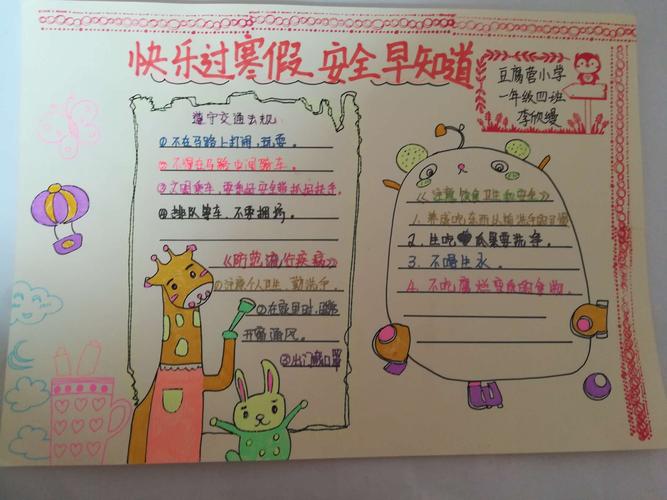 快乐过寒假 安全早知道
豆腐营小学
一年级四班
李欣缦
遵守交通法规:
①不在马路上打闹,玩耍。
②不得在马路中间骑车。
③文明乘车,要系好安全带抓好扶手。
④排队等车,不要拥挤。
《防范流行疾病》
①注意个人卫生,勤洗手。
②在家里时,
开窗通风。
③出门戴口罩
《注意饮食卫生和安全》
1. 养成吃东西以前洗手的习惯
2. 生吃瓜果要洗净。
3. 不喝生水。
4. 不吃腐烂变质的食物。